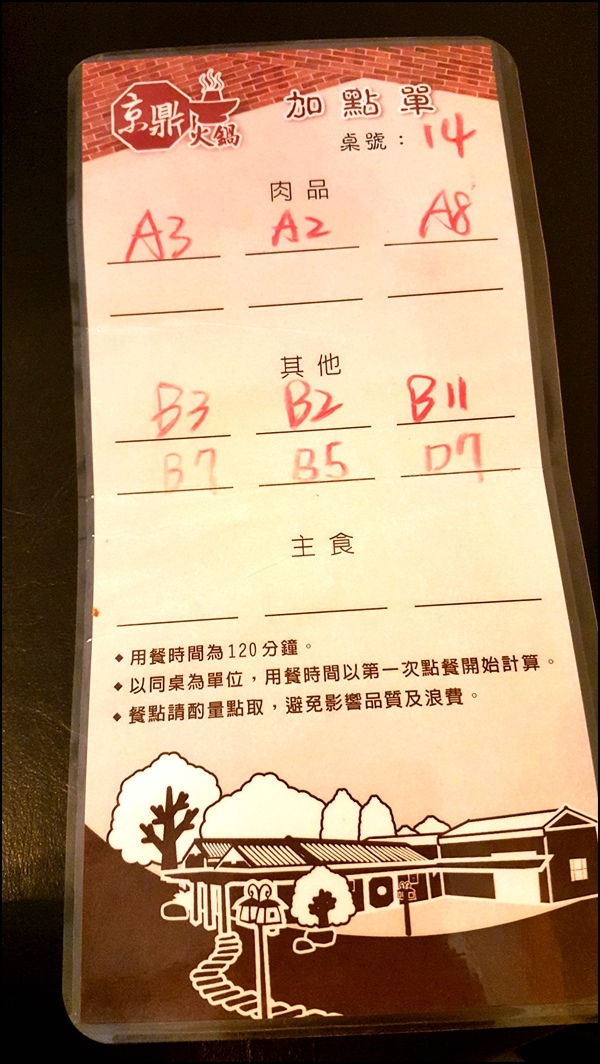 京鼎火鍋
加點單
桌號：14
肉品
A3 A2 A8
其他
B3 B2 B11
B7 B5 D7
主食
◆ 用餐時間為120分鐘。
◆ 以同桌為單位，用餐時間以第一次點餐開始計算。
◆ 餐點請酌量點取，避免影響品質及浪費。